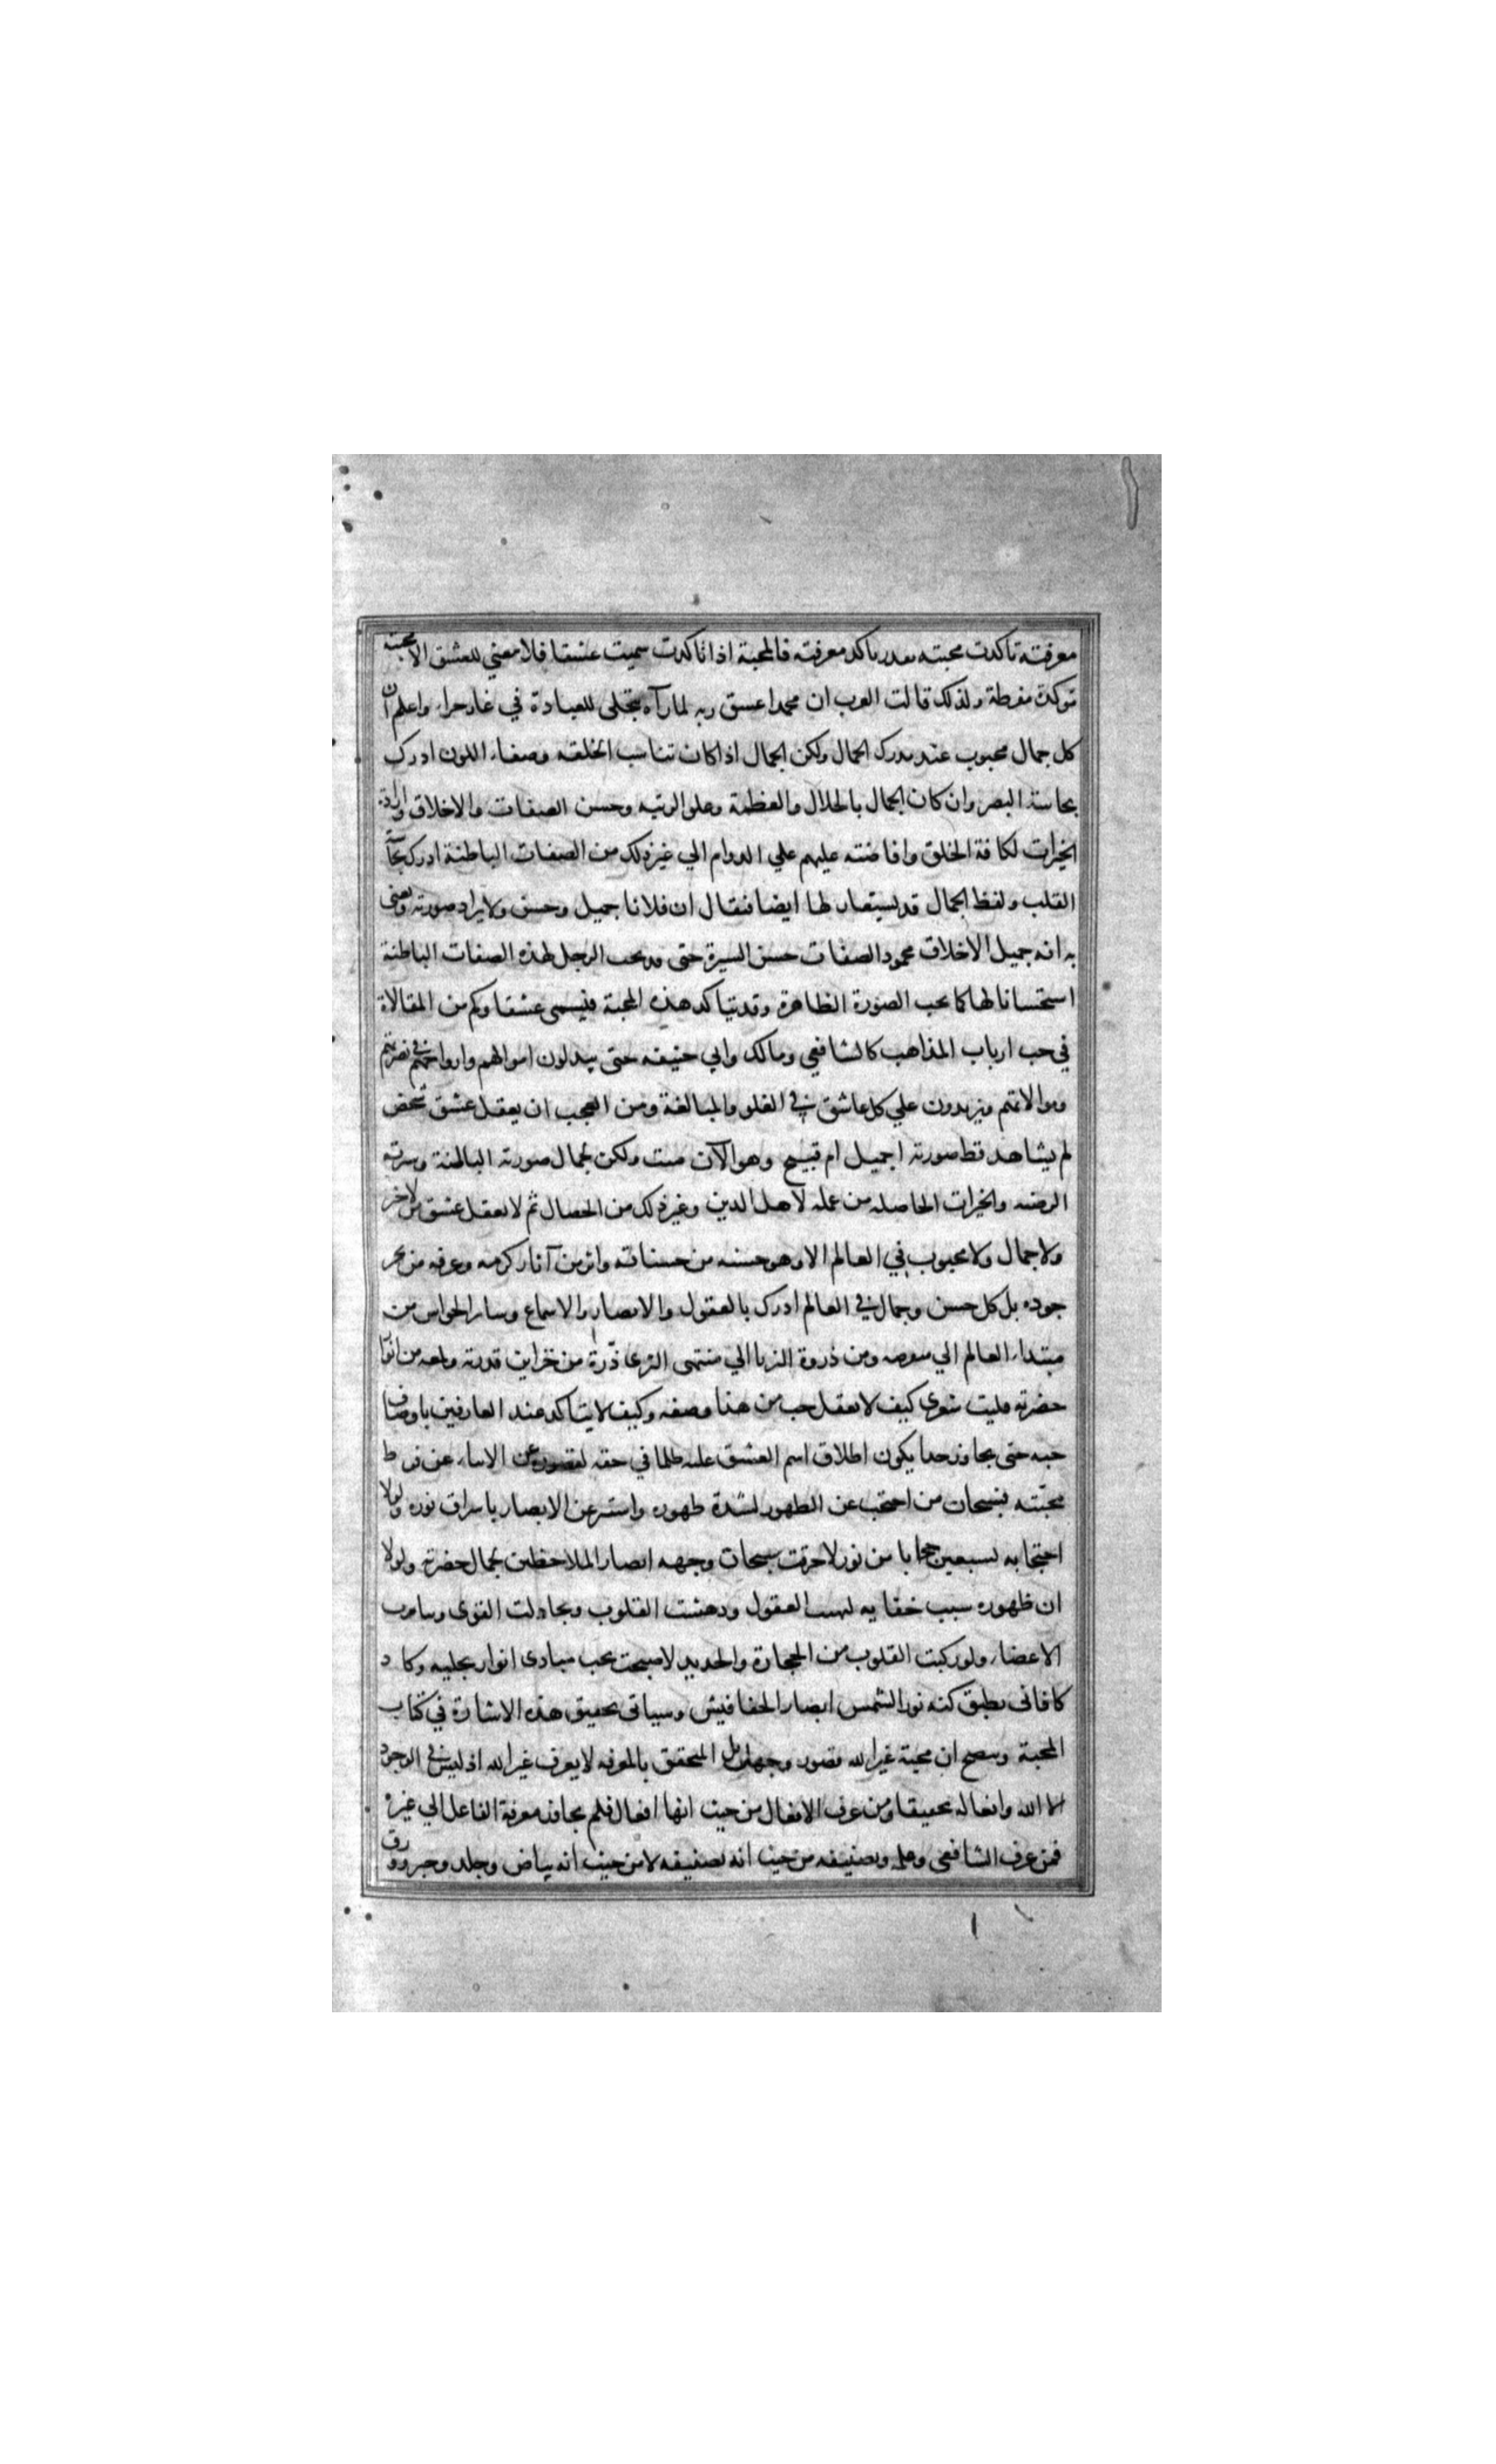 معرفته تاكدت محبته بقدر تاكد معرفته فالمحبة اذا تاكدت سميت عشقا فلا معني للعشق الا محبة
موكدة مفرطة ولذلك قالت العرب ان محمدا عشق ربه لما رآه تجلى للعبادة في غار حراء واعلم ان
كل جمال محبوب عند مدرك الجمال ولكن الجمال اذا كان تناسب الخلقه وصفاء اللون ادرك
بحاسة البصر وان كان الجمال بالجلال والعظمة وعلو الرتبه وحسن الصفات والاخلاق وارادة
الخيرات لكافة الخلق وافاضته عليهم علي الدوام الي غير ذلك من الصفات الباطنة ادرك بحاسة
القلب ولفظ الجمال قد يستعار لها ايضا فيقال ان فلانا جميل وحسن ولا يراد صورته ويعنى
به انه جميل الاخلاق محمود الصفات حسن السيرة حتى قد يحب الرجل لهذه الصفات الباطنة
استحسانا لها كما يحب الصورة الظاهرة وقد تتاكد هذه المحبة فيسمى عشقا وكم من المقالاة
في حب ارباب المذاهب كالشافعي ومالك وابي حنيفه حتى يبذلون اموالهم وارواحهم في نصرتهم
وموالاتهم ويزيدون علي كل عاشق في الغلو والمبالغة ومن العجب ان يعقل عشق شخص
لم يشاهد قط صورته اجميل ام قبيح وهو الآن ميت ولكن لجمال صورته الباطنة وسيرته
المرضيه والخيرات الحاصله من عمله لاهل الدين وغير ذلك من الخصال ثم لا يعقل عشق من لا خير
ولا جمال ولا محبوب في العالم الا وهو حسنه من حسناته واثر من آثار كرمه وغرفه من بحر
جوده بل كل حسن وجمال في العالم ادرك بالعقول والابصار والاسماع وسائر الحواس من
مبتداء العالم الي منقرضه ومن ذروة الثريا الي منتهى الثرى ذرة من خزاين قدرته ولمعه من انوار
حضرته فليت شعري كيف لا يعقل حب من هذا وصفه وكيف لا يتاكد عند العارفين باوصاف
حبه حتى يجاوز حدا يكون اطلاق اسم العشق عليه ظلما في حقه لقصوره عن الانباء عن فرط
محبته فسبحان من احتجب عن الظهور لشدة ظهوره واستتر عن الابصار باشراق نوره ولولا
احتجابه بسبعين حجابا من نور لاحرقت سبحات وجهه ابصار الملاحظين لجمال حضرته ولولا
ان ظهوره سبب خفايه لبهتت العقول ودهشت القلوب وتخاذلت القوى وتنافرت
الاعضاء ولو ركبت القلوب من الحجارة والحديد لاصبحت تحت مبادى انوار تجليه دكا د
كا فانى يطيق كنه نور الشمس ابصار الخفافيش وسياتى تحقيق هذه الاشارة في كتاب
المحبة ويتضح ان محبة غير الله قصور وجهل بل المتحقق بالمعرفه لا يعرف غير الله اذ ليس في الوجود
الا الله وافعاله تحقيقا ومن عرف الافعال من حيث انها افعال فلم يجاوز معرفة الفاعل الي غيره
فمن عرف الشافعى وعلمه وتصنيفه من حيث انه تصنيفه لا من حيث انه بياض وجلد وحبر وورق